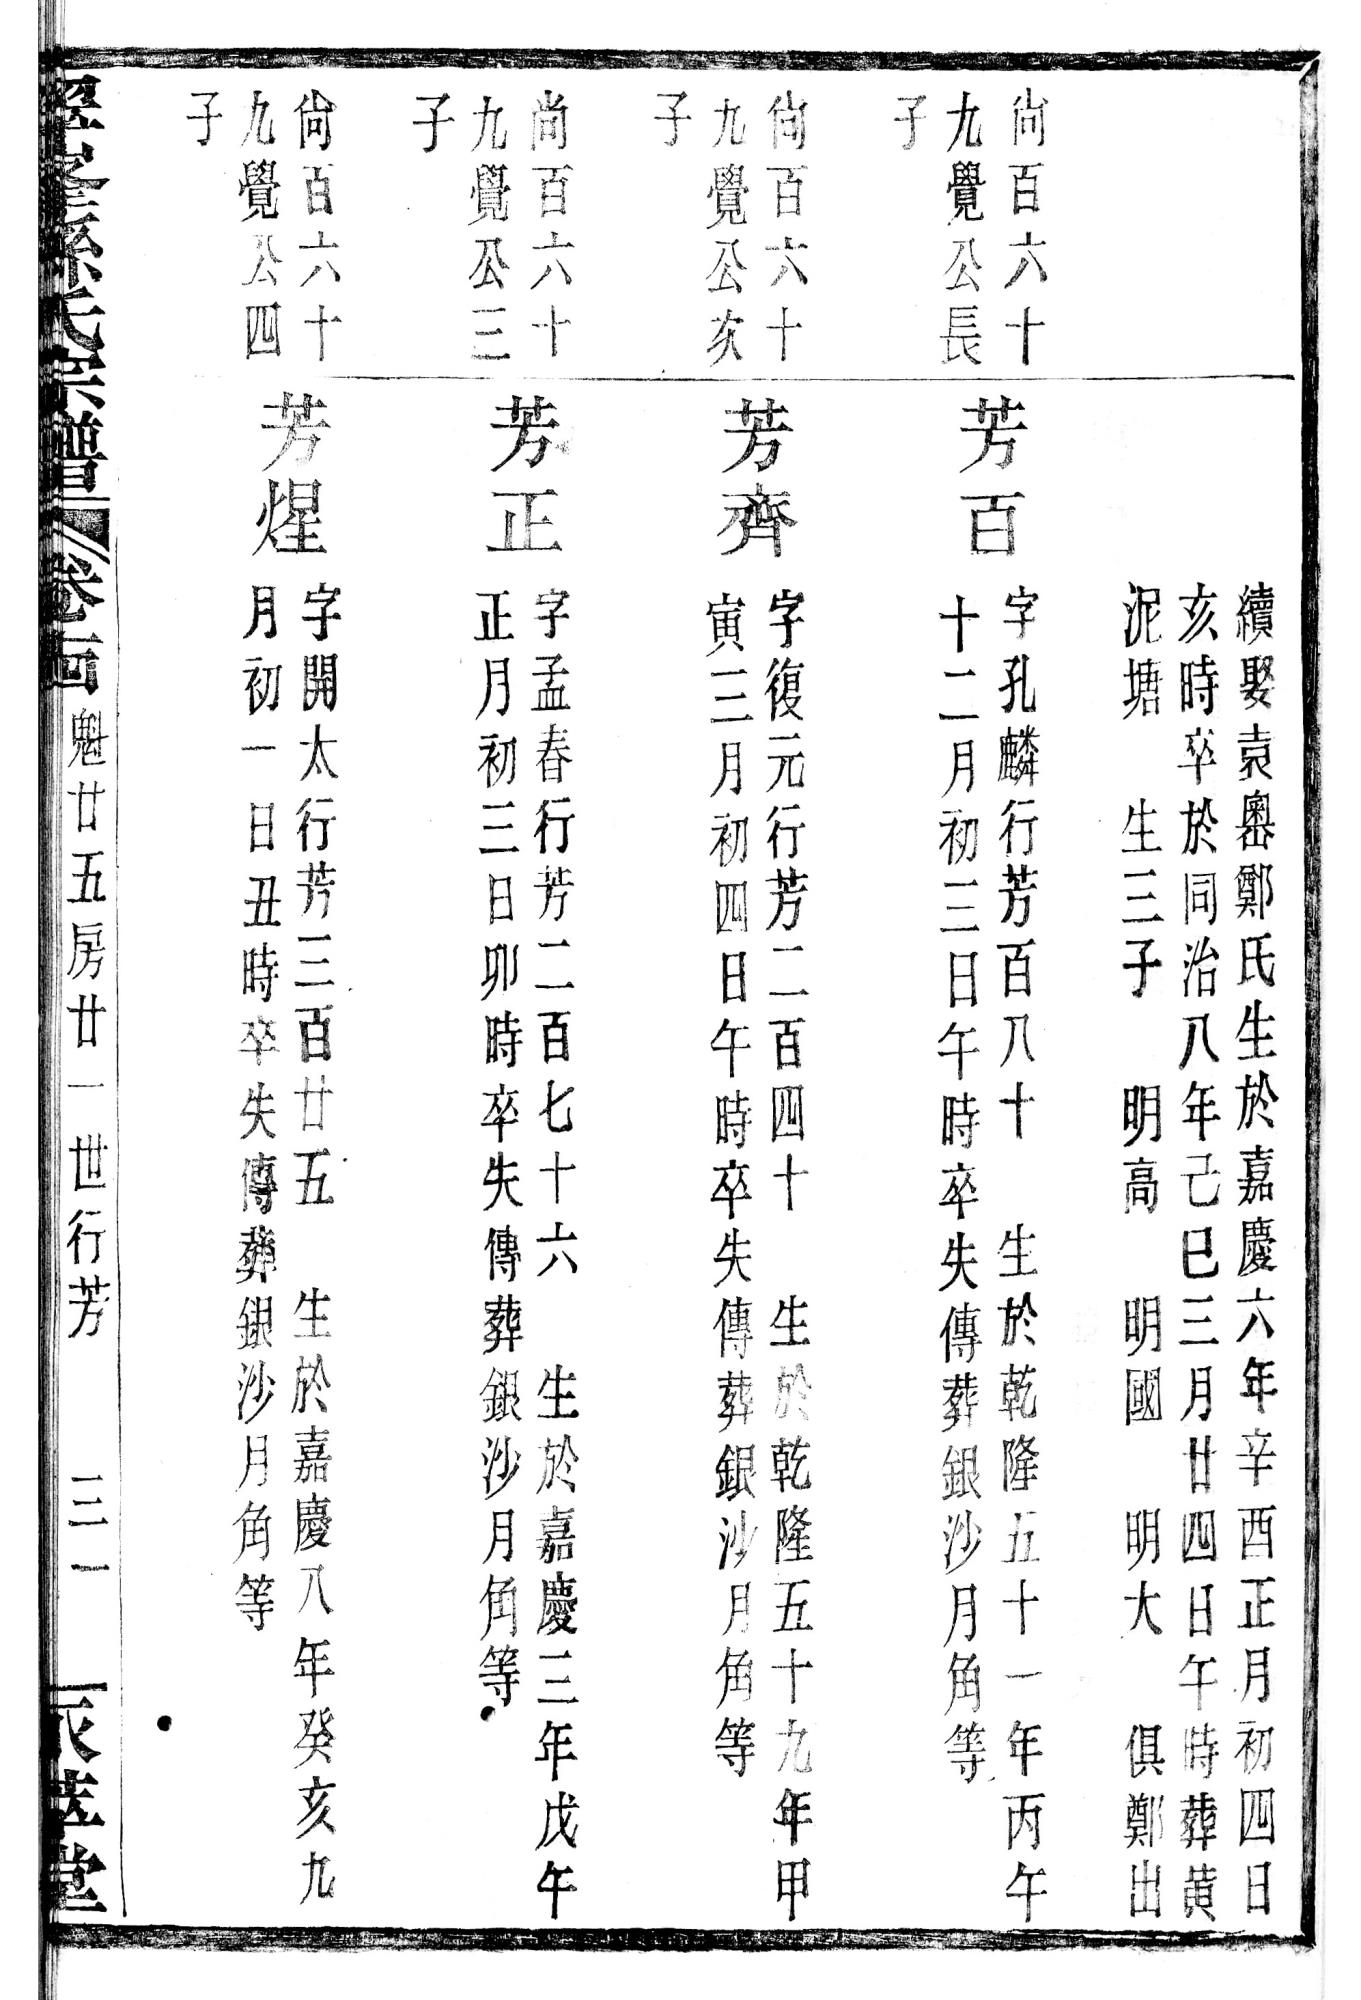 續娶袁嶴鄭氏生於嘉慶六年辛酉正月初四日
亥時卒於同治八年己巳三月廿四日午時葬黄
泥塘　生三子　明高　明國　明大　俱鄭出
尙百六十
九覺公長
子
芳百
字孔麟行芳百八十　生於乾隆五十一年丙午
十二月初三日午時卒失傳葬銀沙月角等
尙百六十
九覺公次
子
芳齊
字復元行芳二百四十　生於乾隆五十九年甲
寅三月初四日午時卒失傳葬銀沙月角等
尚百六十
九覺公三
子
芳正
字孟春行芳二百七十六　生於嘉慶三年戊午
正月初三日卯時卒失傳葬銀沙月角等
尙百六十
九覺公四
子
芳煋
字開太行芳三百廿五　生於嘉慶八年癸亥九
月初一日丑時卒失傳葬銀沙月角等
孫氏宗譜
卷 魁廿五房廿一世行芳　三一
堂